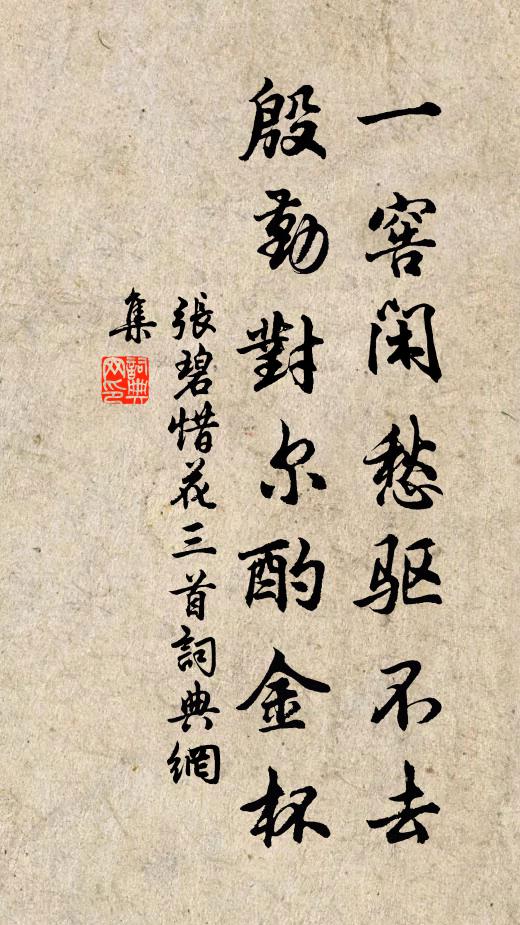 一窖闲愁驱不去
殷勤對尔酌金杯
張碧惜花三首詞典網
集
詞典網印